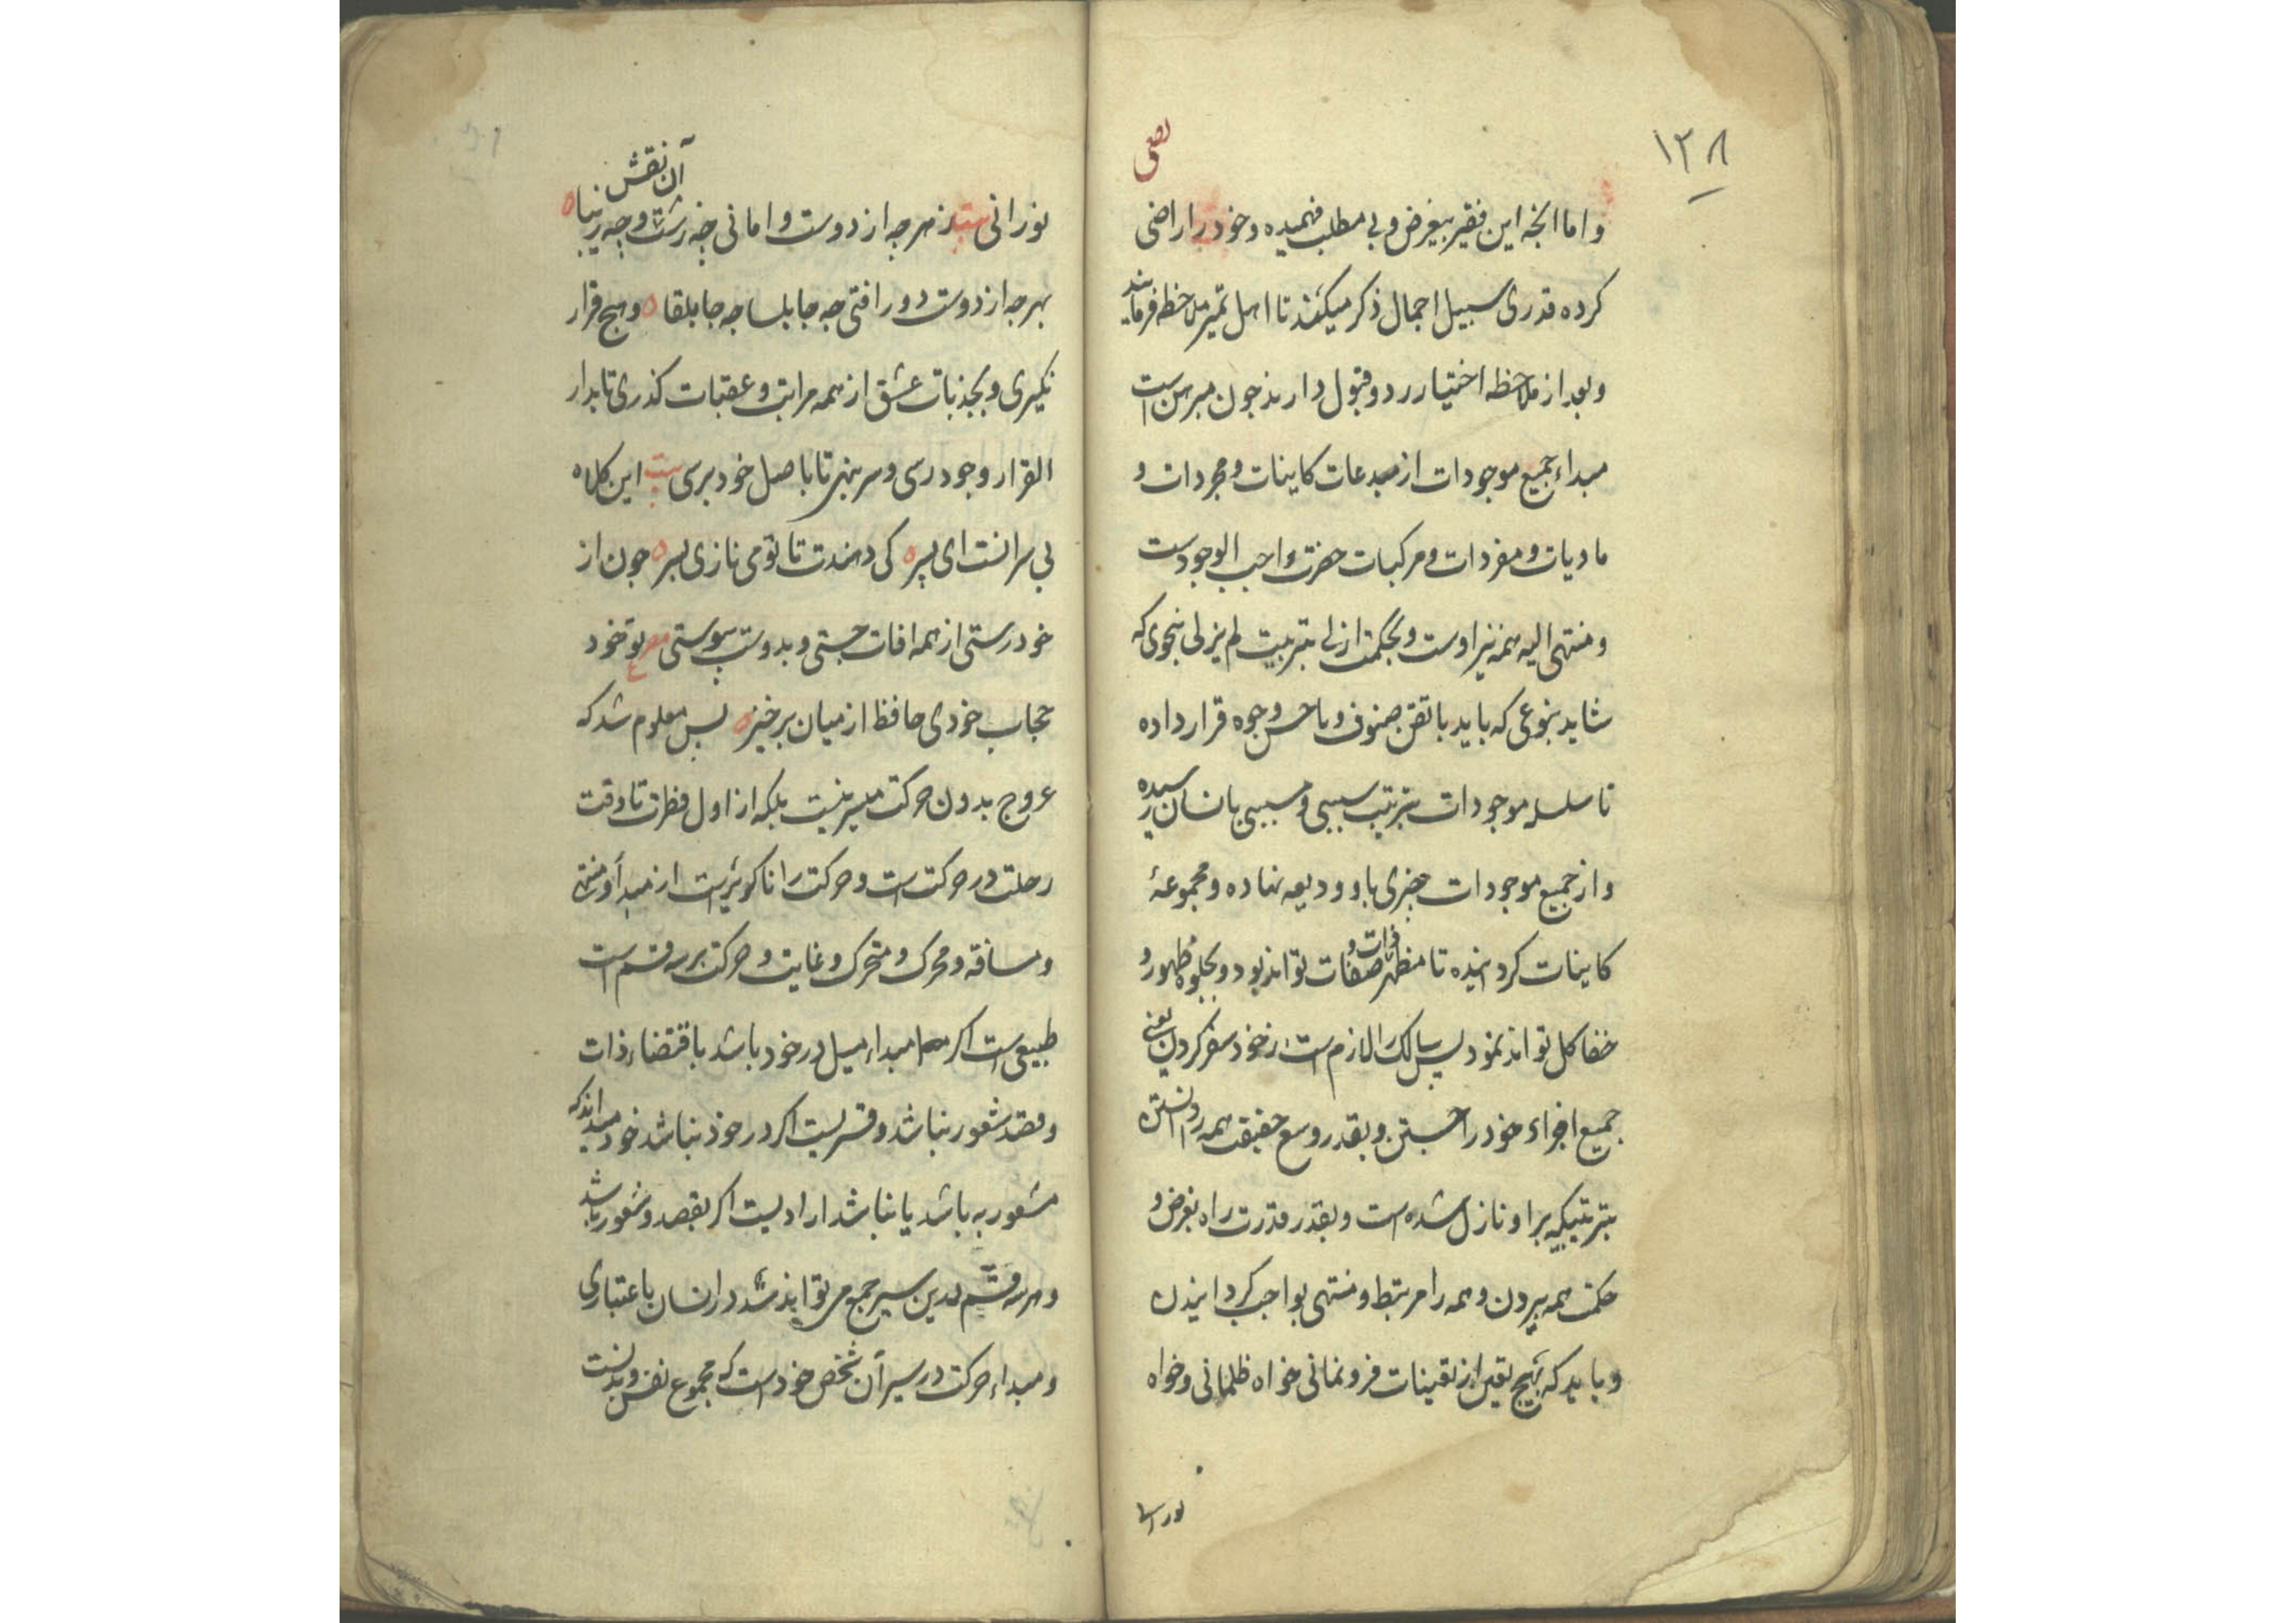 ۱۲۸
و اما انچه این فقیر بیغرض و بی مطلب فهمیده و خود را راضی
کرده قدری سبیل اجمال ذکر میکند تا اهل تمیز ملاحظه فرمایند
و بعد از ملاحظه اختیار رد و قبول دارند چون مبرهن است
مبداء جمیع موجودات از مبدعات کاینات و مجردات و
مادیات و مفردات و مرکبات حضرت واجب الوجودست
و منتهی الیه همه نیز اوست و بحکمت ازلی بتربیت لم یزلی بنحوی که
شاید بنوعی که باید باتقن صنوف و باحسن وجوه قرار داده
تا سلسله موجودات بترتیب سببی و مسببی بانسان رسیده
و از جمیع موجودات چیزی باو ودیعه نهاده و مجموعهٔ
کاینات کردانیده تا مظهر ذات و صفات تواند بود و بجلوه ظهور و
خفا کل تواند نمود پس سالک را لازم است در خود سفر کردن یعنی
جمیع اجزاء خود را جستن و بقدر وسع حقیقت همه را دانستن
بترتیبیکه براو نازل شده است و بقدر قدرت راه بغرض و
حکمت همه بردن و همه را مرتبط و منتهی بواجب کردانیدن
و باید که بهیچ تعین از تعینات فرو نمانی خواه ظلمانی و خواه
نورانی
آن نقش
نورانی بیت ز هرچه از دوست وامانی چه زشت و چه زیبا
بهرچه از دوست دور افتی چه جابلسا چه جابلقا و هیچ قرار
نکیری و بجذبات عشق از همه مراتب و عقبات کذری تا بدار
القرار وجود رسی و سر بنهی تا باصل خود برسی بیت این کلاه
بی سرانست ای پسر کی دهندت تا تو می نازی بسر چون از
خود رستی از همه افات جستی و بدوست پیوستی مصرع تو خود
حجاب خودی حافظ از میان برخیز پس معلوم شد که
عروج بدون حرکت میسر نیست بلکه از اول فطرت تا وقت
رحلت در حرکت است و حرکت را ناکزیرست از مبدأ و منتهی
و مسافة و محرک و متحرک و غایت و حرکت بر سه قسم است
طبیعی است اکر مبداء میل در خود باشد باقتضاء ذات
و قصد شعور نباشد و قسریست اکر در خود نباشد خود میداند که
مشعور به باشد یا نباشد ارادیست اکر بقصد و شعور باشد
و هر سه قسم درین سیر جمع می تواند شد در انسان باعتباری
و مبداء حرکت در سیر آن شخص خودست که مجموع نفس و بدنست